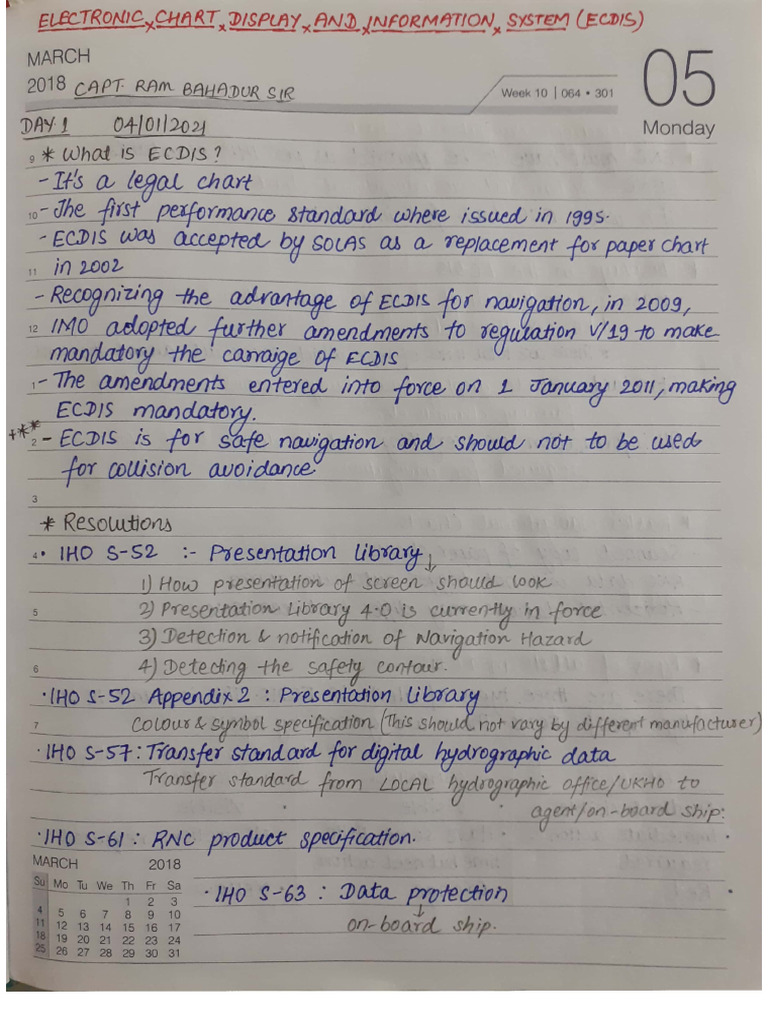 ELECTRONIC x CHART x DISPLAY x AND x INFORMATION x SYSTEM (ECDIS)
MARCH
2018 CAPT. RAM BAHADUR SIR
Week 10 | 064 • 301
05
Monday
DAY 1 04/01/2021
9 * What is ECDIS?
- It's a legal chart
10 - The first performance standard where issued in 1995.
- ECDIS was accepted by SOLAS as a replacement for paper chart
11 in 2002
- Recognizing the advantage of ECDIS for navigation, in 2009,
12 IMO adopted further amendments to regulation V/19 to make
mandatory the carraige of ECDIS
1 - The amendments entered into force on 1 January 2011, making
ECDIS mandatory.
+** 2 - ECDIS is for safe navigation and should not to be used
for collision avoidance
3
* Resolutions
4 • IHO S-52 :- Presentation library ↓
1) How presentation of screen should look
5 2) Presentation Library 4.0 is currently in force
3) Detection & notification of Navigation Hazard
6 4) Detecting the safety contour.
• IHO S-52 Appendix 2 : Presentation Library
7 Colour & symbol specification (This should not vary by different manufacturer)
• IHO S-57 : Transfer standard for digital hydrographic data
Transfer standard from LOCAL hydrographic office/UKHO to
agent/on-board ship:
• IHO S-61 : RNC product specification.
MARCH 2018
Su Mo Tu We Th Fr Sa
1 2 3
4 5 6 7 8 9 10
11 12 13 14 15 16 17
18 19 20 21 22 23 24
25 26 27 28 29 30 31
• IHO S-63 : Data protection
↓
on-board ship.